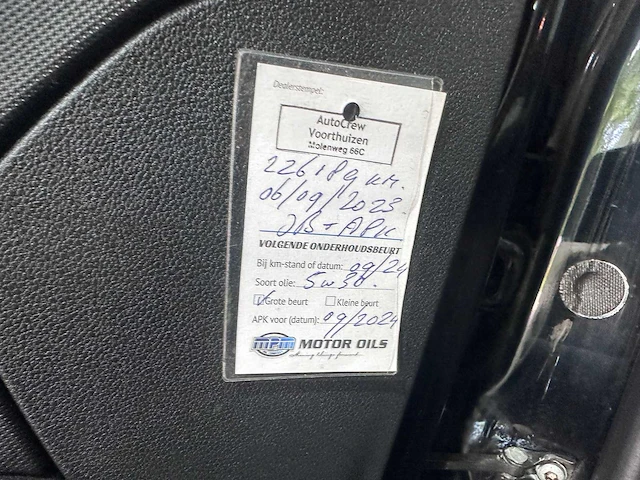 Dealerstempel:
AutoCrew
Voorthuizen
Molenweg 66C
226189 KM.
06/09/2023.
JB + APK
VOLGENDE ONDERHOUDSBEURT
Bij km-stand of datum: 09/24
Soort olie: 5w30.
Grote beurt Kleine beurt
APK voor (datum): 09/2024
mpm MOTOR OILS